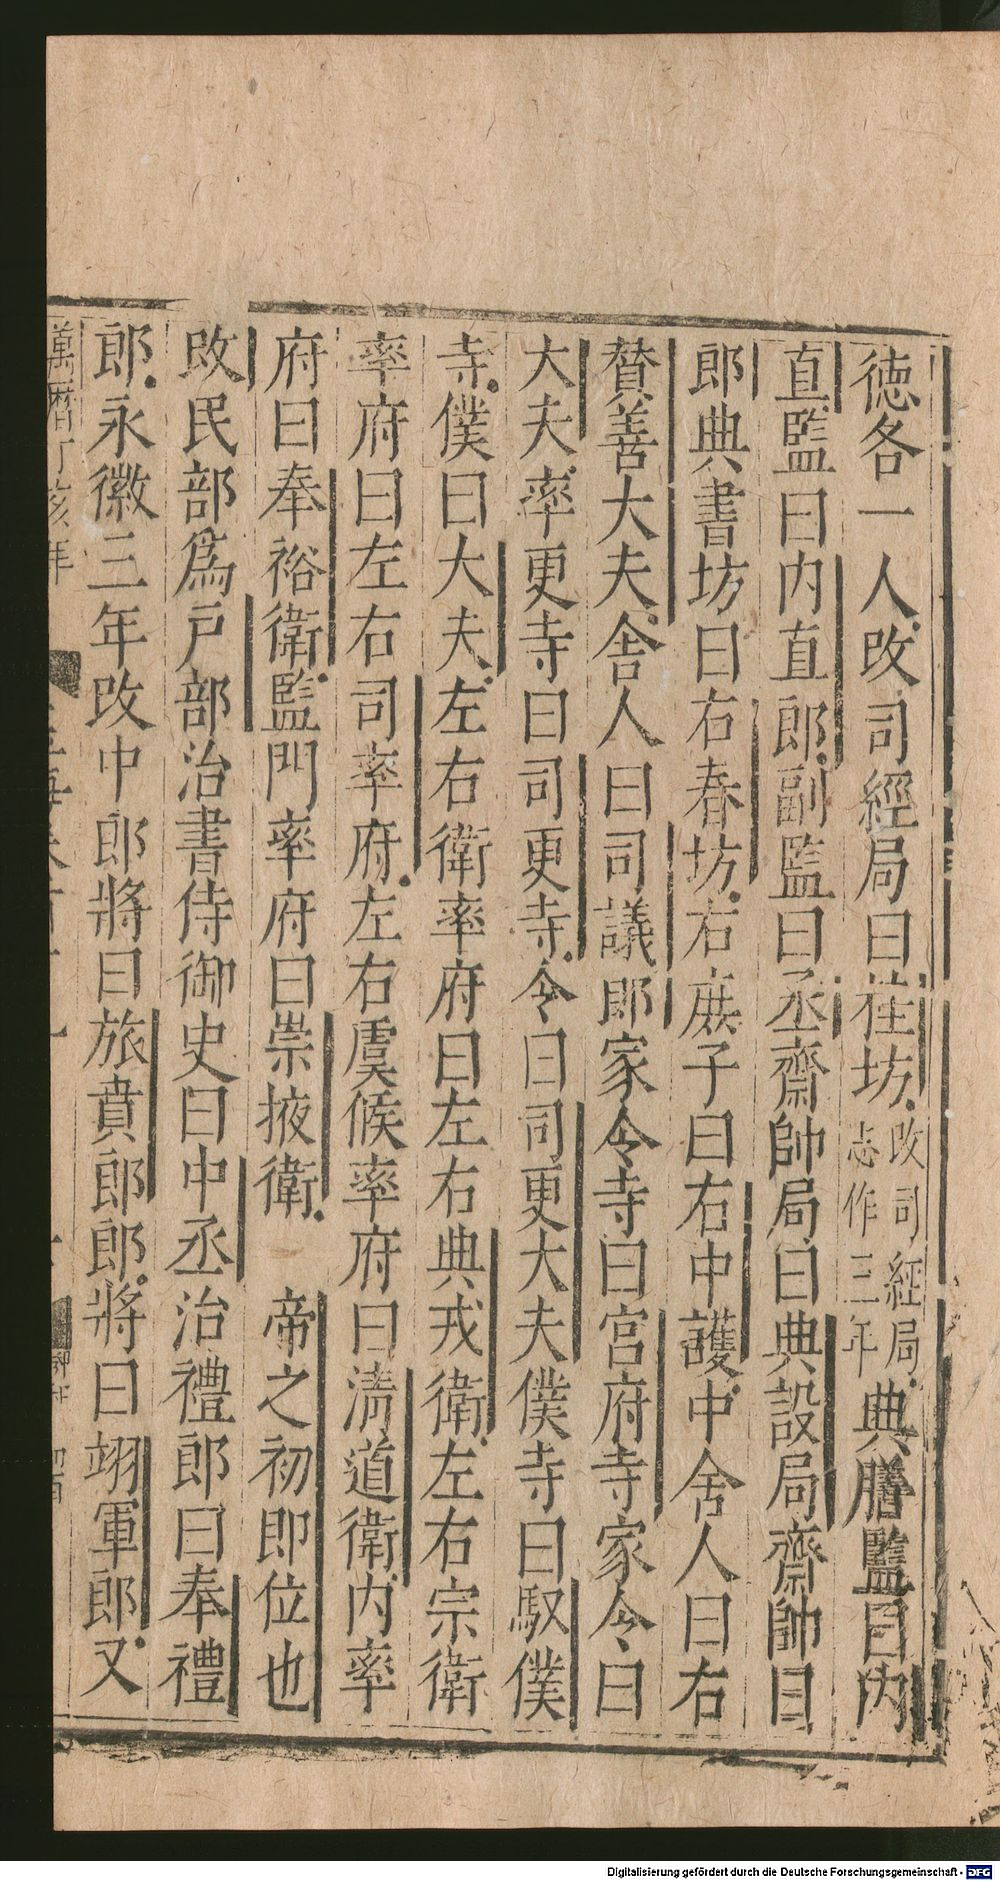 德各一人改司經局曰桂坊改司經局志作三年典膳監曰內
直監曰內直郎副監曰丞齋帥局曰典設局齋帥曰
郎典書坊曰右春坊右庶子曰右中護中舍人曰右
贊善大夫舍人曰司議郎家令寺曰宮府寺家令曰
大夫率更寺曰司更寺令曰司更大夫僕寺曰馭僕
寺僕曰大夫左右衛率府曰左右典戎衛左右宗衛
率府曰左右司率府左右虞候率府曰淸道衛內率
府曰奉裕衛監門率府曰崇掖衛 帝之初即位也
改民部爲戶部治書侍御史曰中丞治禮郎曰奉禮
郎永徽三年改中郎將曰旅賁郎郎將曰翊軍郎又
萬曆丁亥年
Digitalisierung gefördert durch die Deutsche Forschungsgemeinschaft - DFG